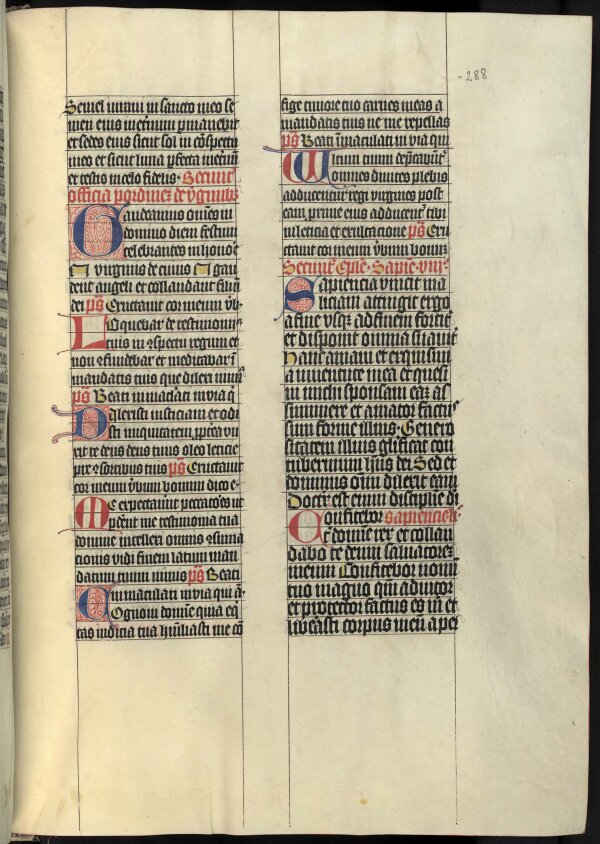 -288
Semel iuravi in sancto meo se
men eius in eternum p manebit
et sedes eius sicut sol in cōspectu
meo et sicut luna pfecta in eternū
et testis in celo fidelis.
officia
Gaudeamus omnes in
domino diem festum
celebrantes in honorē
virginis de cuius gau
dent angeli et collaudant filiū
dei ps Eructavit cor meum vb.
Loquebar de testimoniis
tuis in conspectu regum et
non confundebar et meditabar ī
mandatis tuis que dilexi nimis
ps Beati inmaculati in via q
Dilexisti iusticiam et odi
sti iniquitatem pptea vn
xit te deus deus tuus oleo leticie
pre consortibus tuis ps Eructavit
cor meum vbum bonum dico e.
Me expectaverunt peccatores ut
pderent me testimonia tua
domine intellexi omnis consuma
tionis vidi finem latum man
datum tuum nimis ps Beati
inmaculati in via qui a.
Cognovi domine quia eq
tas iudicia tua humiliasti me cō
fige timore tuo carnes meas a
mandatis tuis ne me repellas
ps Beati īmaculati in via qui
Vultum tuum depcabunt
omnes divites plebis
adducentur regi virgines post
eam proxime eius adducent tibi
in leticia et exultatione ps Eru
ctavit cor meum vbum bonū.
Sapie. viii.
Sapiencia vincit ma
liciam attingit ergo
a fine vsq ad finem fortit
et disponit omnia suavit
Hanc amavi et exquisivi
a iuventute mea et quesi
vi michi sponsam eā as
sumere et amator factus
sum forme illius. Genero
sitatem illius glificat con
tubernium hns dei Sed et
dominus oim dilexit eam
Doctrix est enim discipline di
Confitebor sapiencie li.
t domine rex et collau
dabo te deum salvatorē
meum Confitebor nomī
tuo magno qm adiutor
et protector factus es m et
liberasti corpus meū a per